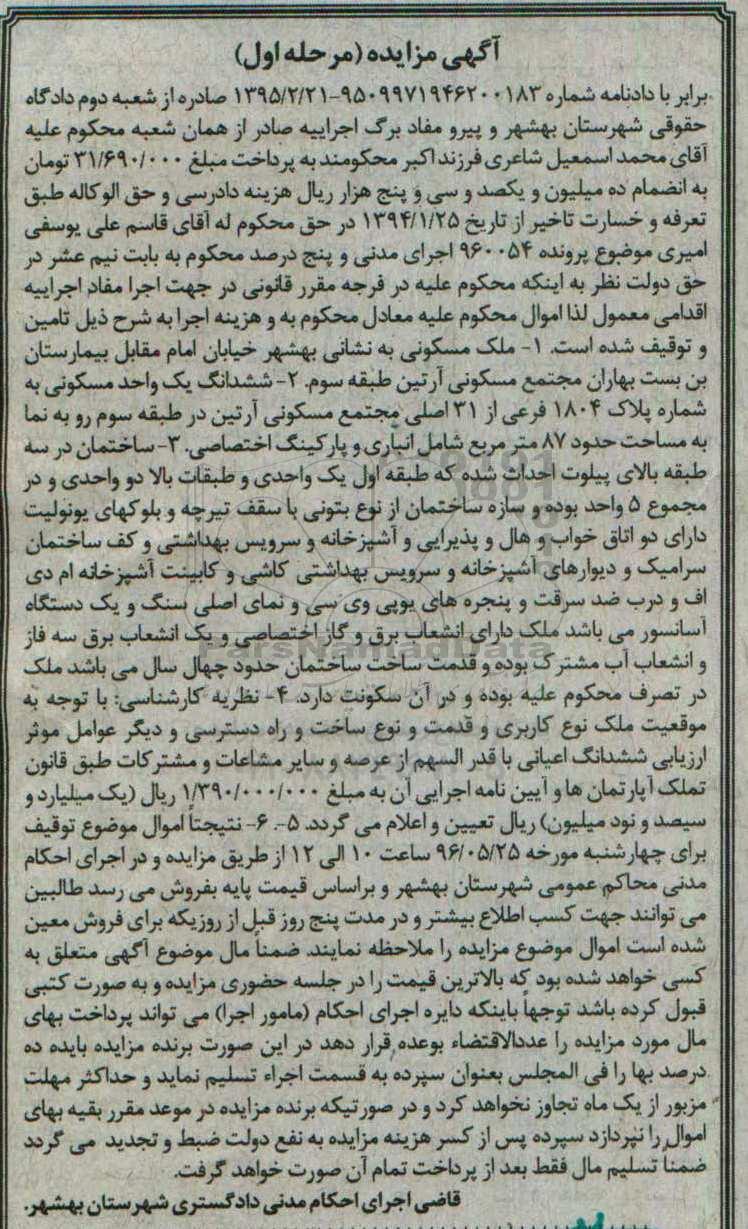 آگهی مزایده (مرحله اول)
برابر با دادنامه شماره ۹۵۰۹۹۷۱۹۴۶۲۰۰۱۸۳-۱۳۹۵/۲/۲۱ صادره از شعبه دوم دادگاه
حقوقی شهرستان بهشهر و پیرو مفاد برگ اجراییه صادر از همان شعبه محکوم علیه
آقای محمد اسمعیل شاعری فرزند اکبر محکومند به پرداخت مبلغ ۳۱/۶۹۰/۰۰۰ تومان
به انضمام ده میلیون و یکصد و سی و پنج هزار ریال هزینه دادرسی و حق الوکاله طبق
تعرفه و خسارت تاخیر از تاریخ ۱۳۹۴/۱/۲۵ در حق محکوم له آقای قاسم علی یوسفی
امیری موضوع پرونده ۹۶۰۰۵۴ اجرای مدنی و پنج درصد محکوم به بابت نیم عشر در
حق دولت نظر به اینکه محکوم علیه در فرجه مقرر قانونی در جهت اجرا مفاد اجراییه
اقدامی معمول لذا اموال محکوم علیه معادل محکوم به و هزینه اجرا به شرح ذیل تامین
و توقیف شده است. ۱- ملک مسکونی به نشانی بهشهر خیابان امام مقابل بیمارستان
بن بست بهاران مجتمع مسکونی آرتین طبقه سوم. ۲- ششدانگ یک واحد مسکونی به
شماره پلاک ۱۸۰۴ فرعی از ۳۱ اصلی مجتمع مسکونی آرتین در طبقه سوم رو به نما
به مساحت حدود ۸۷ متر مربع شامل انباری و پارکینگ اختصاصی. ۳- ساختمان در سه
طبقه بالای پیلوت احداث شده که طبقه اول یک واحدی و طبقات بالا دو واحدی و در
مجموع ۵ واحد بوده و سازه ساختمان از نوع بتونی با سقف تیرچه و بلوکهای یونولیت
دارای دو اتاق خواب و هال و پذیرایی و آشپزخانه و سرویس بهداشتی و کف ساختمان
سرامیک و دیوارهای آشپزخانه و سرویس بهداشتی کاشی و کابینت آشپزخانه ام دی
اف و درب ضد سرقت و پنجره های یوپی وی سی و نمای اصلی سنگ و یک دستگاه
آسانسور می باشد ملک دارای انشعاب برق و گاز اختصاصی و یک انشعاب برق سه فاز
و انشعاب آب مشترک بوده و قدمت ساخت ساختمان حدود چهال سال می باشد ملک
در تصرف محکوم علیه بوده و در آن سکونت دارد. ۴- نظریه کارشناسی: با توجه به
موقعیت ملک نوع کاربری و قدمت و نوع ساخت و راه دسترسی و دیگر عوامل موثر
ارزیابی ششدانگ اعیانی با قدر السهم از عرصه و سایر مشاعات و مشترکات طبق قانون
تملک آپارتمان ها و آیین نامه اجرایی آن به مبلغ ۱/۳۹۰/۰۰۰/۰۰۰ ریال (یک میلیارد و
سیصد و نود میلیون) ریال تعیین و اعلام می گردد. ۵-. ۶- نتیجتاً اموال موضوع توقیف
برای چهارشنبه مورخه ۹۶/۰۵/۲۵ ساعت ۱۰ الی ۱۲ از طریق مزایده و در اجرای احکام
مدنی محاکم عمومی شهرستان بهشهر و براساس قیمت پایه بفروش می رسد طالبین
می توانند جهت کسب اطلاع بیشتر و در مدت پنج روز قبل از روزیکه برای فروش معین
شده است اموال موضوع مزایده را ملاحظه نمایند. ضمناً مال موضوع آگهی متعلق به
کسی خواهد شده بود که بالاترین قیمت را در جلسه حضوری مزایده و به صورت کتبی
قبول کرده باشد توجهاً باینکه دایره اجرای احکام (مامور اجرا) می تواند پرداخت بهای
مال مورد مزایده را عددالاقتضاء بوعده قرار دهد در این صورت برنده مزایده بایده ده
درصد بها را فی المجلس بعنوان سپرده به قسمت اجراء تسلیم نماید و حداکثر مهلت
مزبور از یک ماه تجاوز نخواهد کرد و در صورتیکه برنده مزایده در موعد مقرر بقیه بهای
اموال را نپردازد سپرده پس از کسر هزینه مزایده به نفع دولت ضبط و تجدید می گردد
ضمناً تسلیم مال فقط بعد از پرداخت تمام آن صورت خواهد گرفت.
قاضی اجرای احکام مدنی دادگستری شهرستان بهشهر.
ParsNamadData